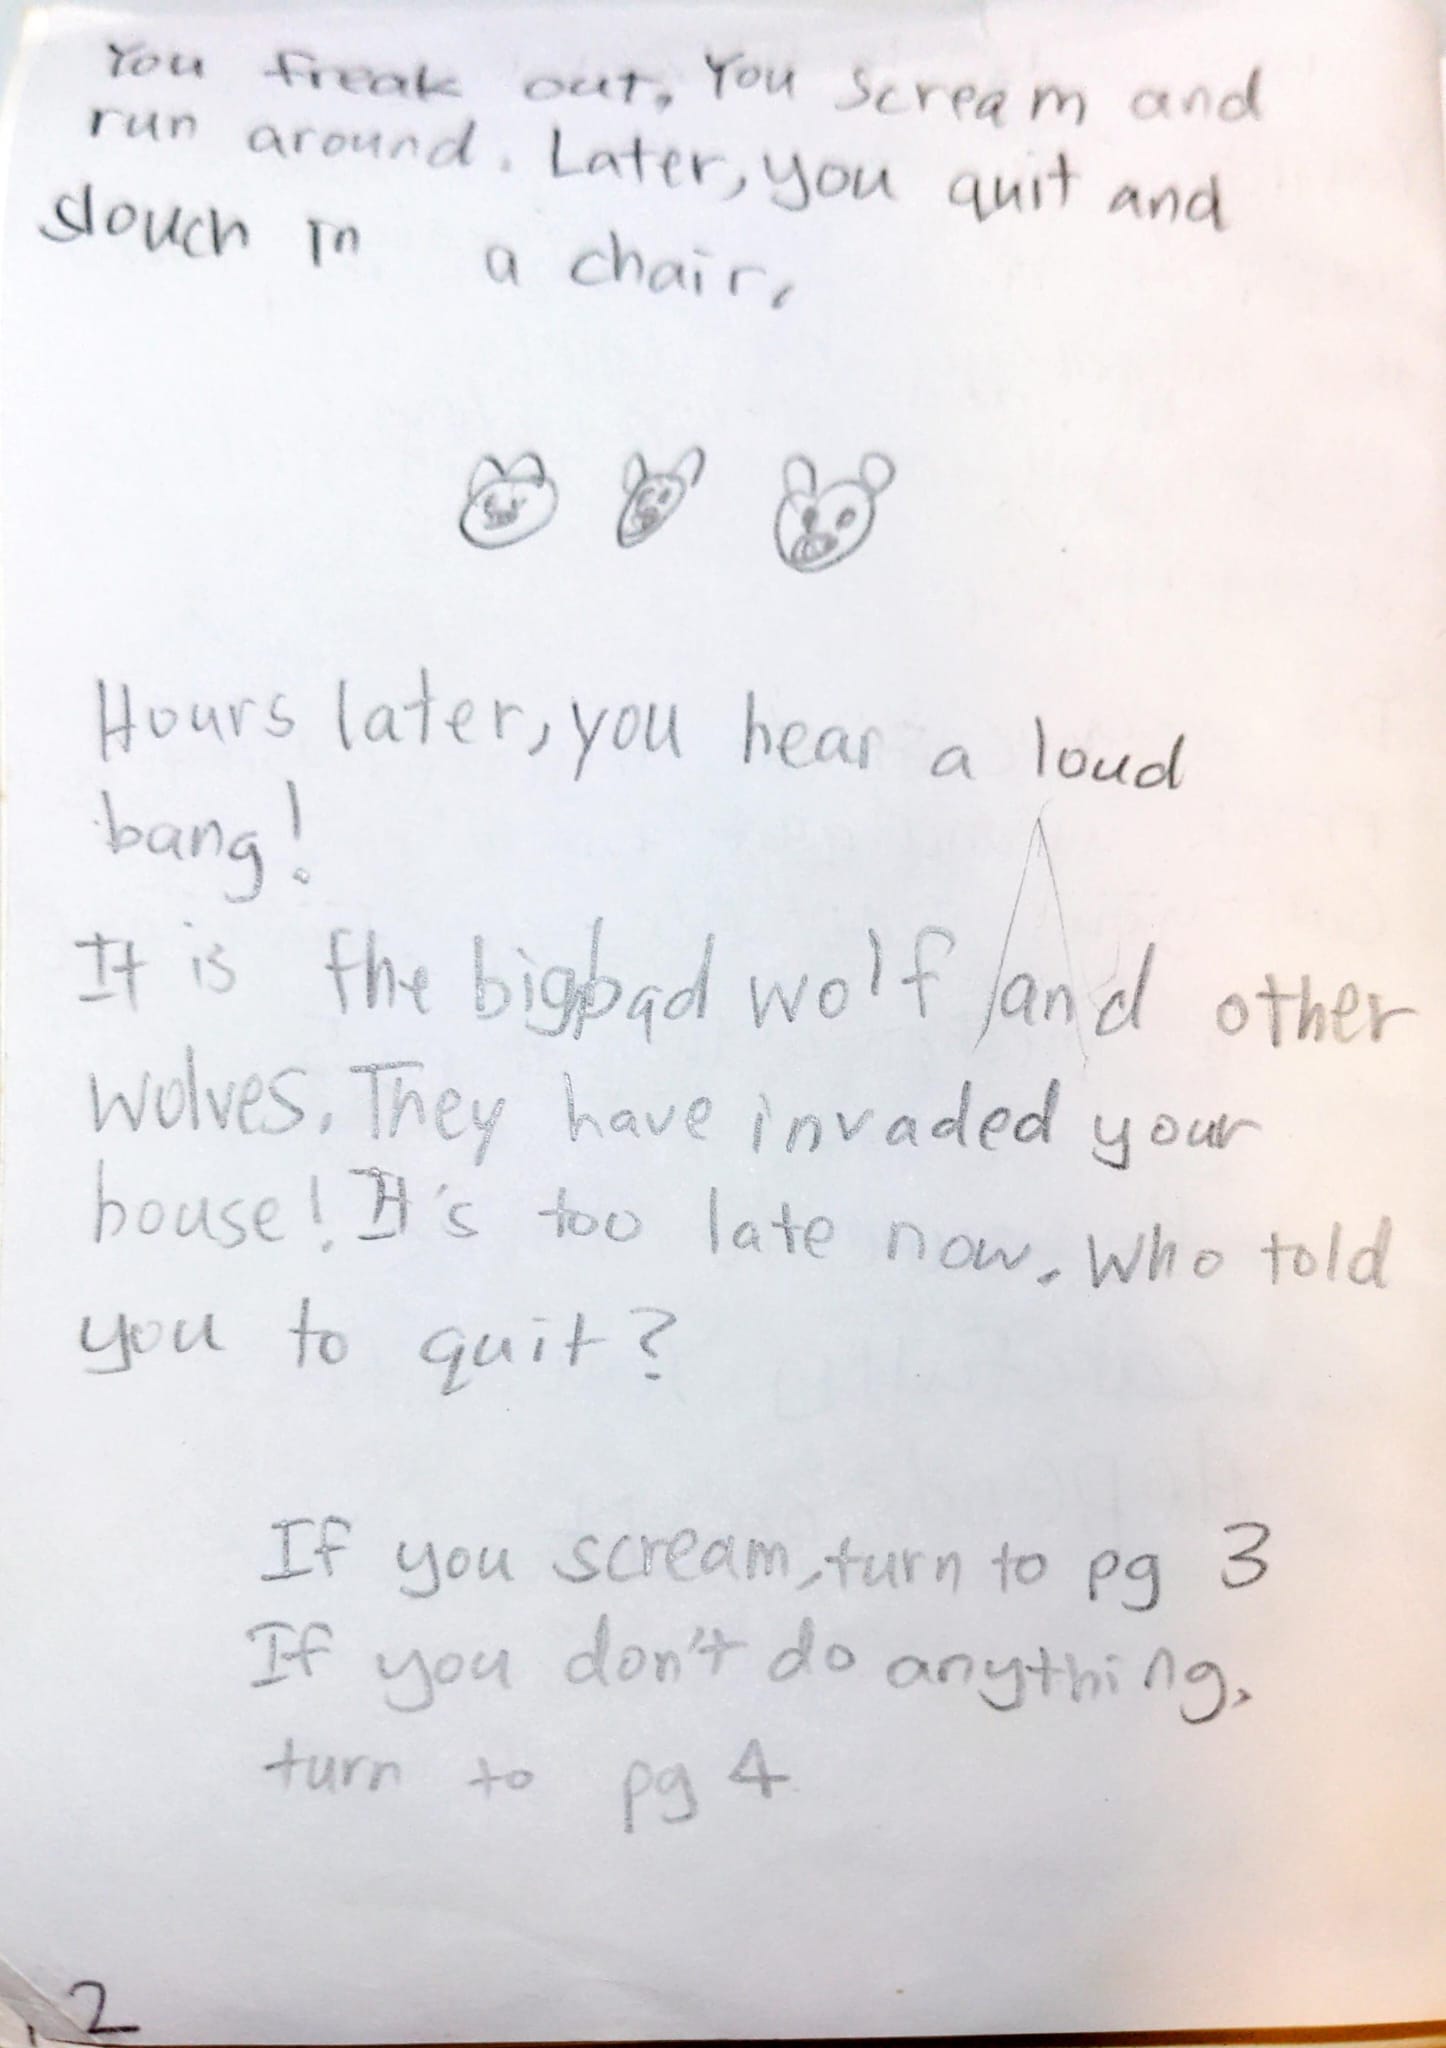 You freak out. You scream and
run around. Later, you quit and
slouch in a chair.
Hours later, you hear a loud
bang!
It is the big bad wolf and other
wolves. They have invaded your
house! It's too late now. Who told
you to quit?
If you scream, turn to pg 3
If you don't do anything,
turn to pg 4
2